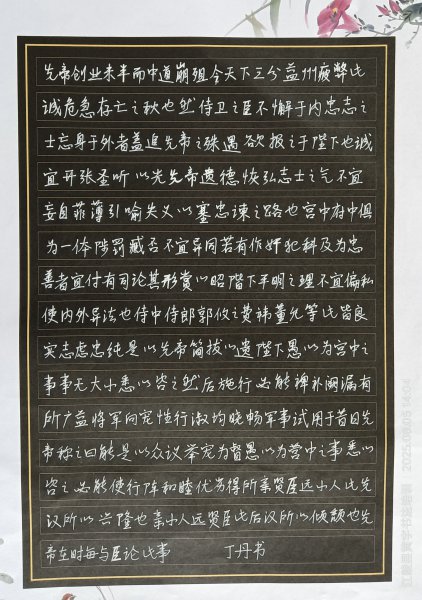 先帝创业未半而中道崩殂今天下三分益州疲弊此
诚危急存亡之秋也然侍卫之臣不懈于内忠志之
士忘身于外者盖追先帝之殊遇欲报之于陛下也诚
宜开张圣听以光先帝遗德恢弘志士之气不宜
妄自菲薄引喻失义以塞忠谏之路也宫中府中俱
为一体陟罚臧否不宜异同若有作奸犯科及为忠
善者宜付有司论其形赏以昭陛下平明之理不宜偏私
使内外异法也侍中侍郎郭攸之费祎董允等此皆良
实志虑忠纯是以先帝简拔以遗陛下愚以为宫中之
事事无大小悉以咨之然后施行必能裨补阙漏有
所广益将军向宠性行淑均晓畅军事试用于昔日先
帝称之曰能是以众议举宠为督愚以为营中之事悉以
咨之必能使行阵和睦优劣得所亲贤臣远小人此先
汉所以兴隆也亲小人远贤臣此后汉所以倾颓也先
帝在时每与臣论此事 丁丹书